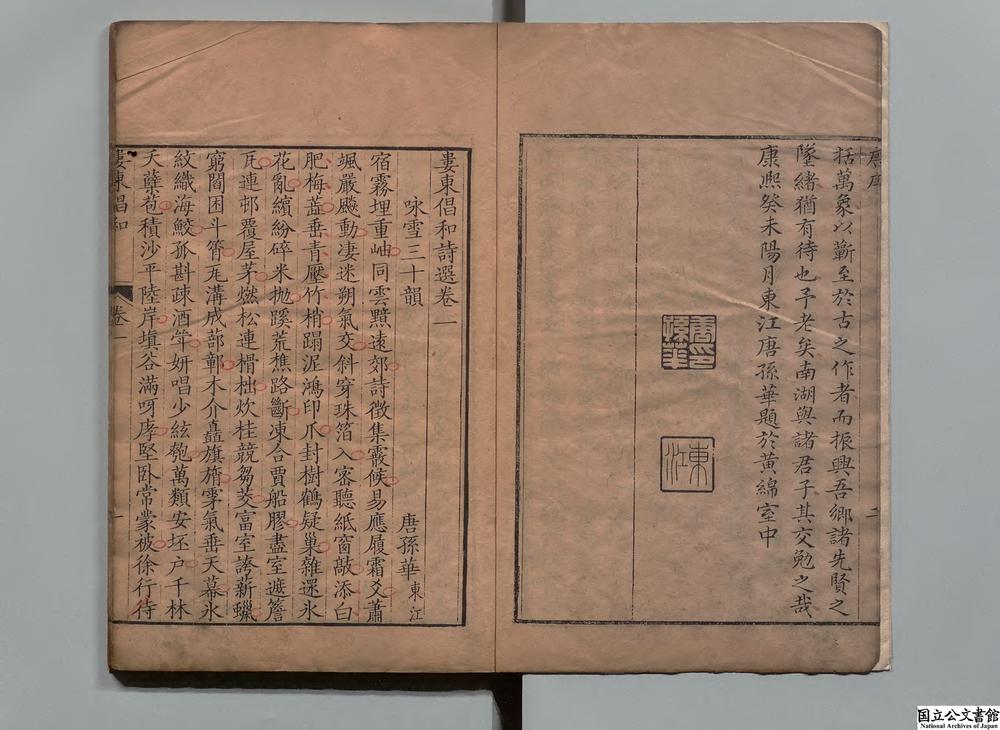 括萬象以蘄至於古之作者而振興吾鄉諸先賢之
墜緒猶有待也予老矣南湖與諸君子其交勉之哉
康熙癸未陽月東江唐孫華題於黃綿室中
唐印孫華
東江
二
婁東倡和詩選卷一
咏雪三十韻
唐孫華東江
宿霧埋重岫同雲黯遠郊詩徵集霰候易應履霜爻蕭
颯嚴飈動凄迷朔氣交斜穿珠箔入密聽紙窗敲添白
肥梅蕋垂青壓竹梢蹋泥鴻印爪封樹鶴疑巢雜還氷
花亂繽紛碎米抛蹊荒樵路斷凍合賈船膠盡室遮簷
瓦連邨覆屋茅燃松連榾柮炊桂競芻茭富室誇薪蠟
窮閻困斗筲旡溝成蔀鄣木介矗旗旓雺氣垂天幕氷
紋織海鮫孤斟疎酒琖妍唱少絃匏萬類安坯戶千林
夭蘖苞積沙平陸岸填谷滿呀庨堅卧常蒙被徐行待
婁東倡和
卷一
一
国立公文書館
National Archives of Japan